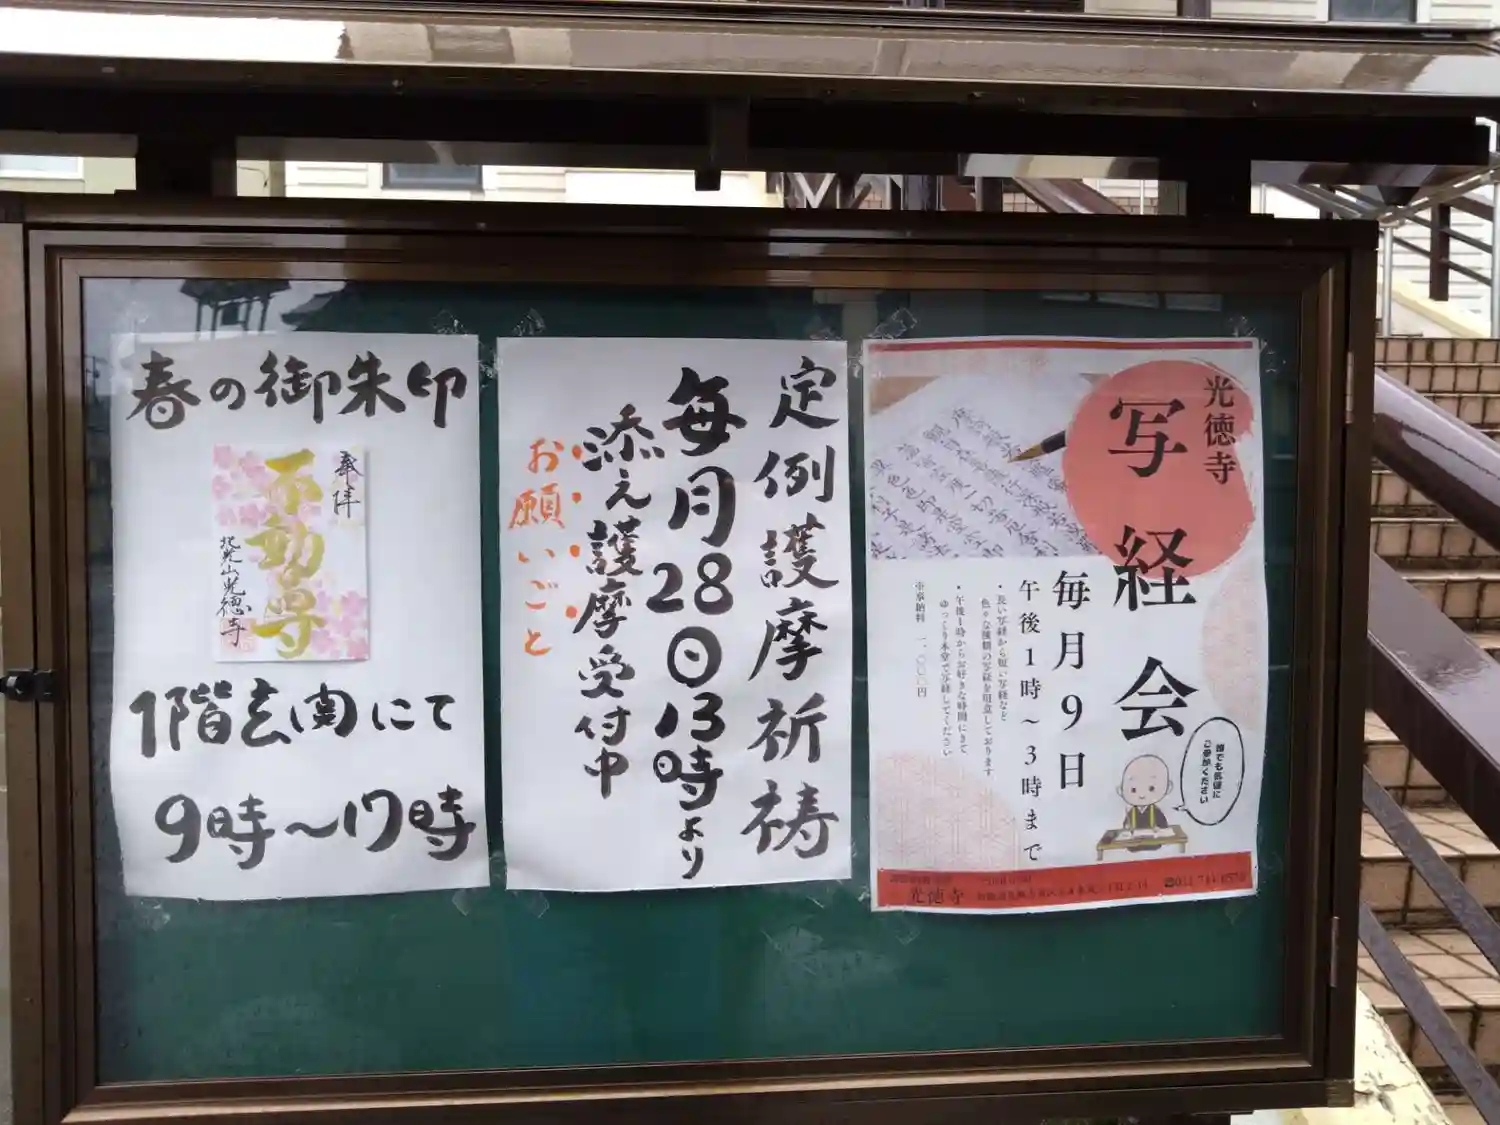 春の御朱印
奉拝
不動尊
光徳寺
1階玄関にて
9時～17時
定例護摩祈祷
毎月28日13時より
添え護摩受付中
お願いごと
光徳寺
写経会
毎月9日
午後1時～3時まで
・長い写経から短い写経など
色々な種類の写経を用意しております
・午後1時からお好きな時間にきて
ゆっくり本堂で写経してください
※奉納料 一、〇〇〇円
誰でも気軽に
ご参加ください
光徳寺